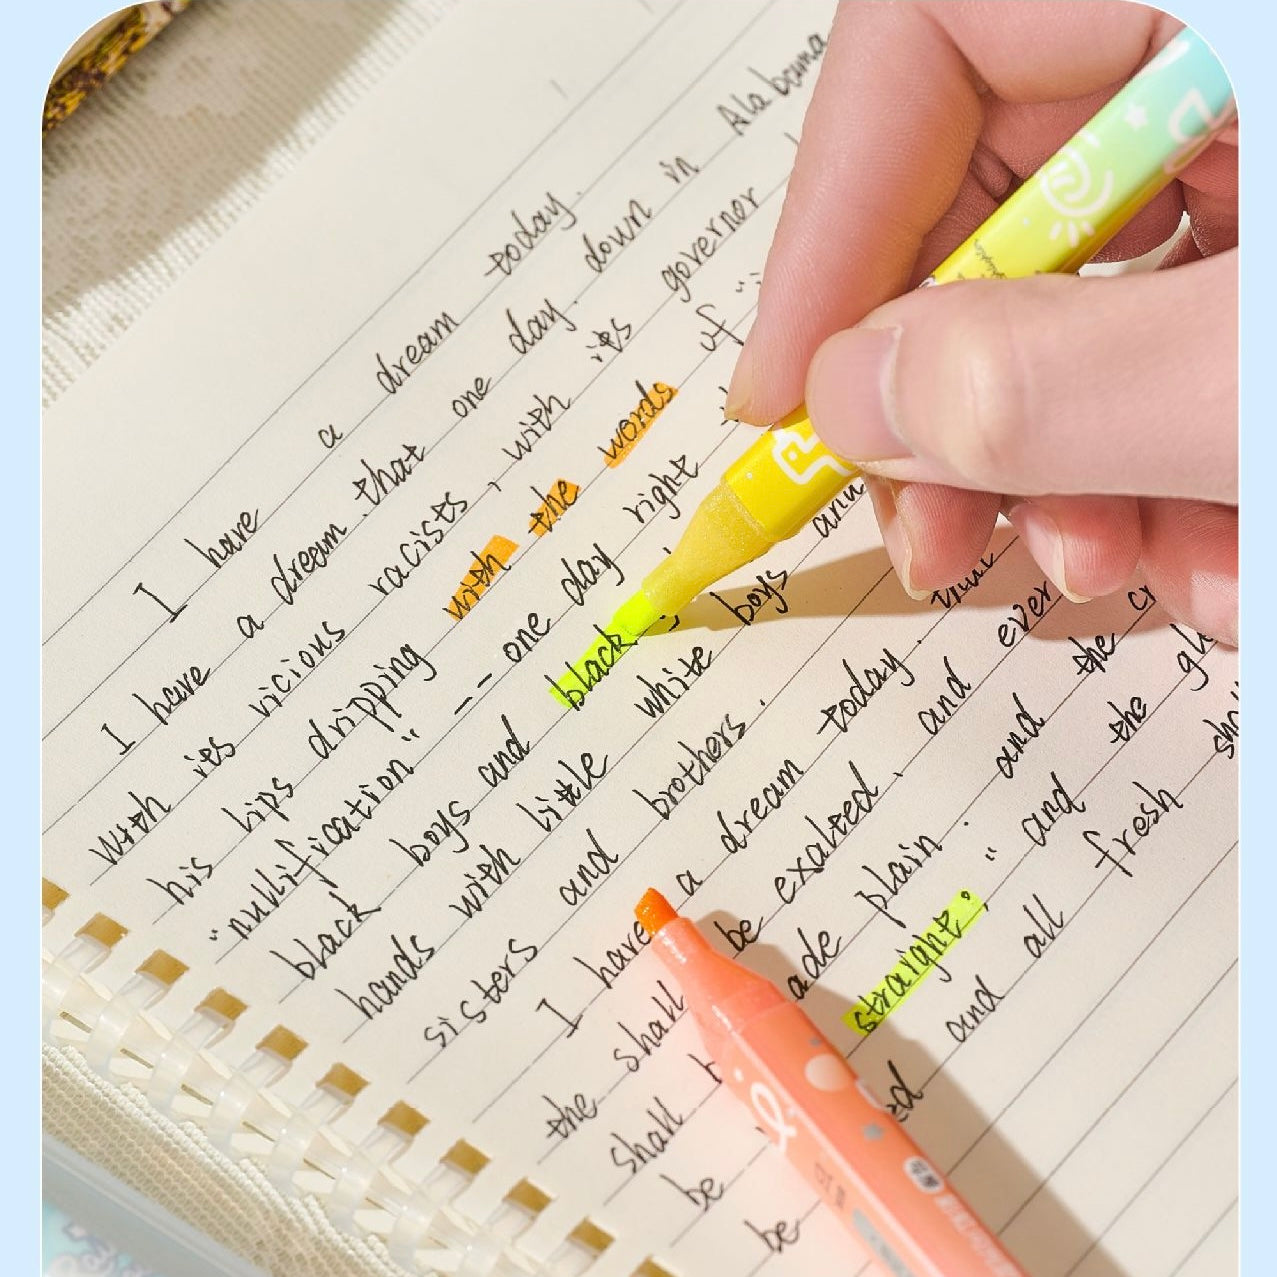 I have a dream today.
I have a dream that one day, down in Alabama
with its vicious racists, with its governor
his lips dripping with the words of "
"nullification" -- one day right
black boys and black
hands with little white boys and
sisters and brothers.
I have a dream today.
the shall be exalted, and ever
shall ade plain, and the
be straight; "and the
be ed and all fresh